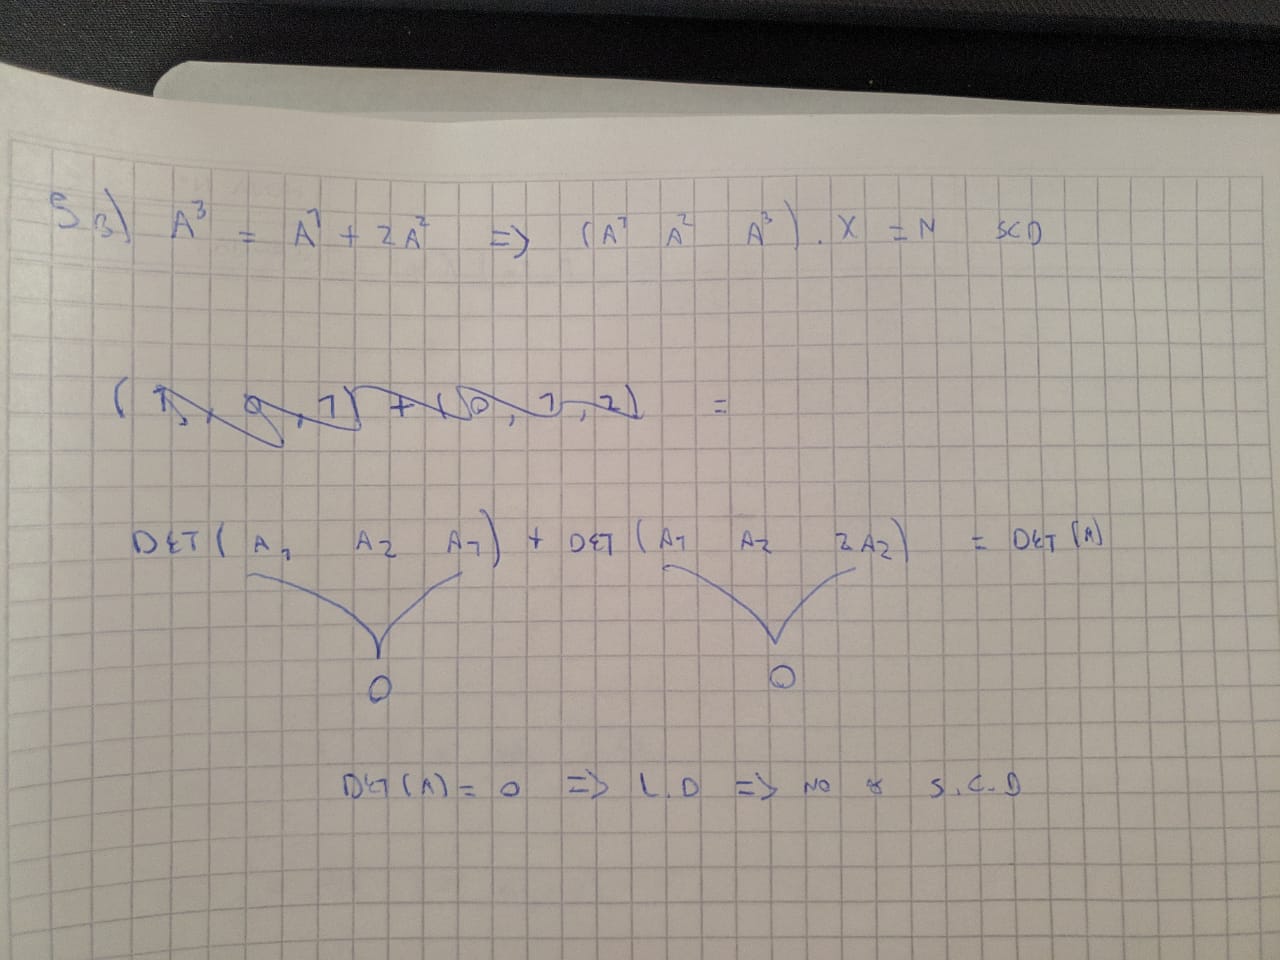 5 B) A³ = A¹ + 2A² => (A¹ A² A³) . X = N SCD
(1, 9, 1) + (0, 1, 2) =
DET ( A₁ A₂ A₁) + DET (A₁ A₂ 2A₂) = DET (A)
0 0
DET (A) = 0 => L.D => NO S.C.D